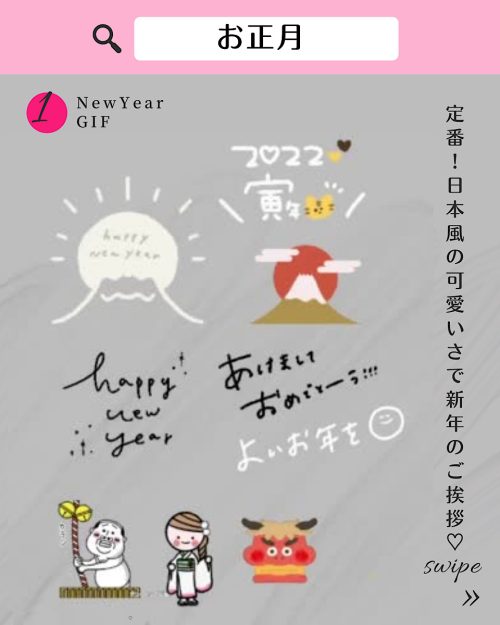 お正月
1
NewYear
GIF
定番!日本風の可愛いさで新年のご挨拶♡
2022
寅年
happy
new year
happy
new
year
あけまして
おめでとーう!!!
よいお年を
swipe
»